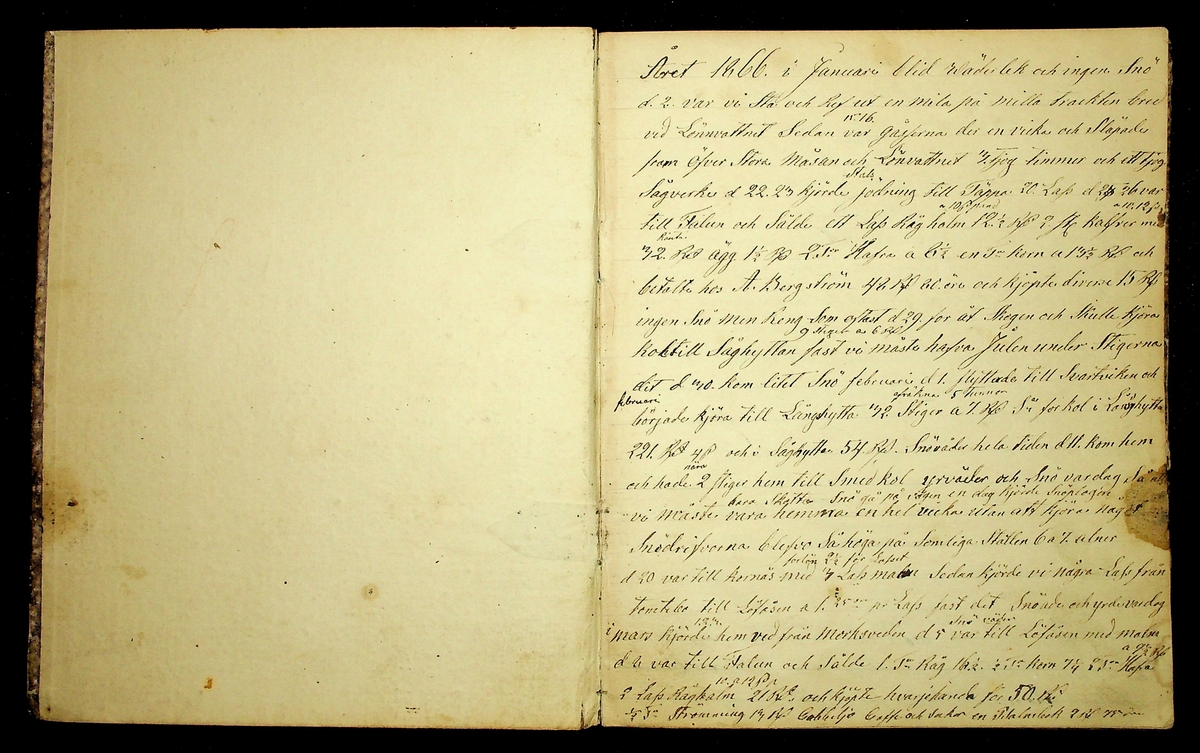 Året 1866. i Januari blid wäderlek och ingen Snö
d. 2. var vi Stå och Ref ut en mila på milla trackten bred
15.16.
ved Lönnvattnet Sedan var gässerna der en vicka och Släpade
fram öfver Stora Måsan och Lönvattnet 17 tjog timmer och ett tjog
Stals
Sågverke d 22. 23 kjörde jödning till Täppa 70. Lass d 26 var
a 10 pund
till Falun och Sålde ett Lass Råghalm 12 ½ R ? st kalfver med
32. Rd ägg 1 ½ R 2 Tr Hafra a 6 ½ en Tr korn a 13 ½ Rd och
betalte hos A. Bergström 42 R 60. öre och kjöpte diverse 15 R
ingen Snö men Reng Som oftast d 29. for åt Skogen och Skulle kjöra
9 Stiger a 6 R
kol till Såghyttan fast vi måste hafva Julen under Stigerna
dit d 30. kom litet Snö februari d 1. flyttade till Svartviken och
februari
började kjöra till Långshytta 32 Stiger a 7. R Så for kol i Långshytta
221. Rd och i Såghytta 54 Rd. Snöväder hela tiden d 11. kom hem
nära
och hade 2 Stiger hem till Smed kol yrväder och Snö vardag Så att
bara Skotta Snö gå på vägen en dag kjörde Snöplogen
vi måste vara hemma en hel vicka utan att kjöra något
Snödrifvorna blefvo Så höga på Somliga Ställen 6 a 7. alner
förlön 2 ½ för Lasset
d 20 var till Kornäs med 4 Lass malm Sedan kjörde vi några Lass från
Tomtebo till Löfåsen a 1. 25 ör pr Lass fast det Snöade och yrde vardag
Snö väder
i mars kjörde hem ved från Morksveden d 5 var till Löfåsen med malm
d 6 var till Falun och Sålde 1. Tr Råg 16 ½. ½ Tr korn 7 ½ 2 Tr Hafra
2 Lass Råghalm 21 Rd. och kjöpte hvarjehanda för 50. R
½ Tr Strömming 13 R Cabbeljo Caffe och Socker en Psalmbok 2 R 75 ör